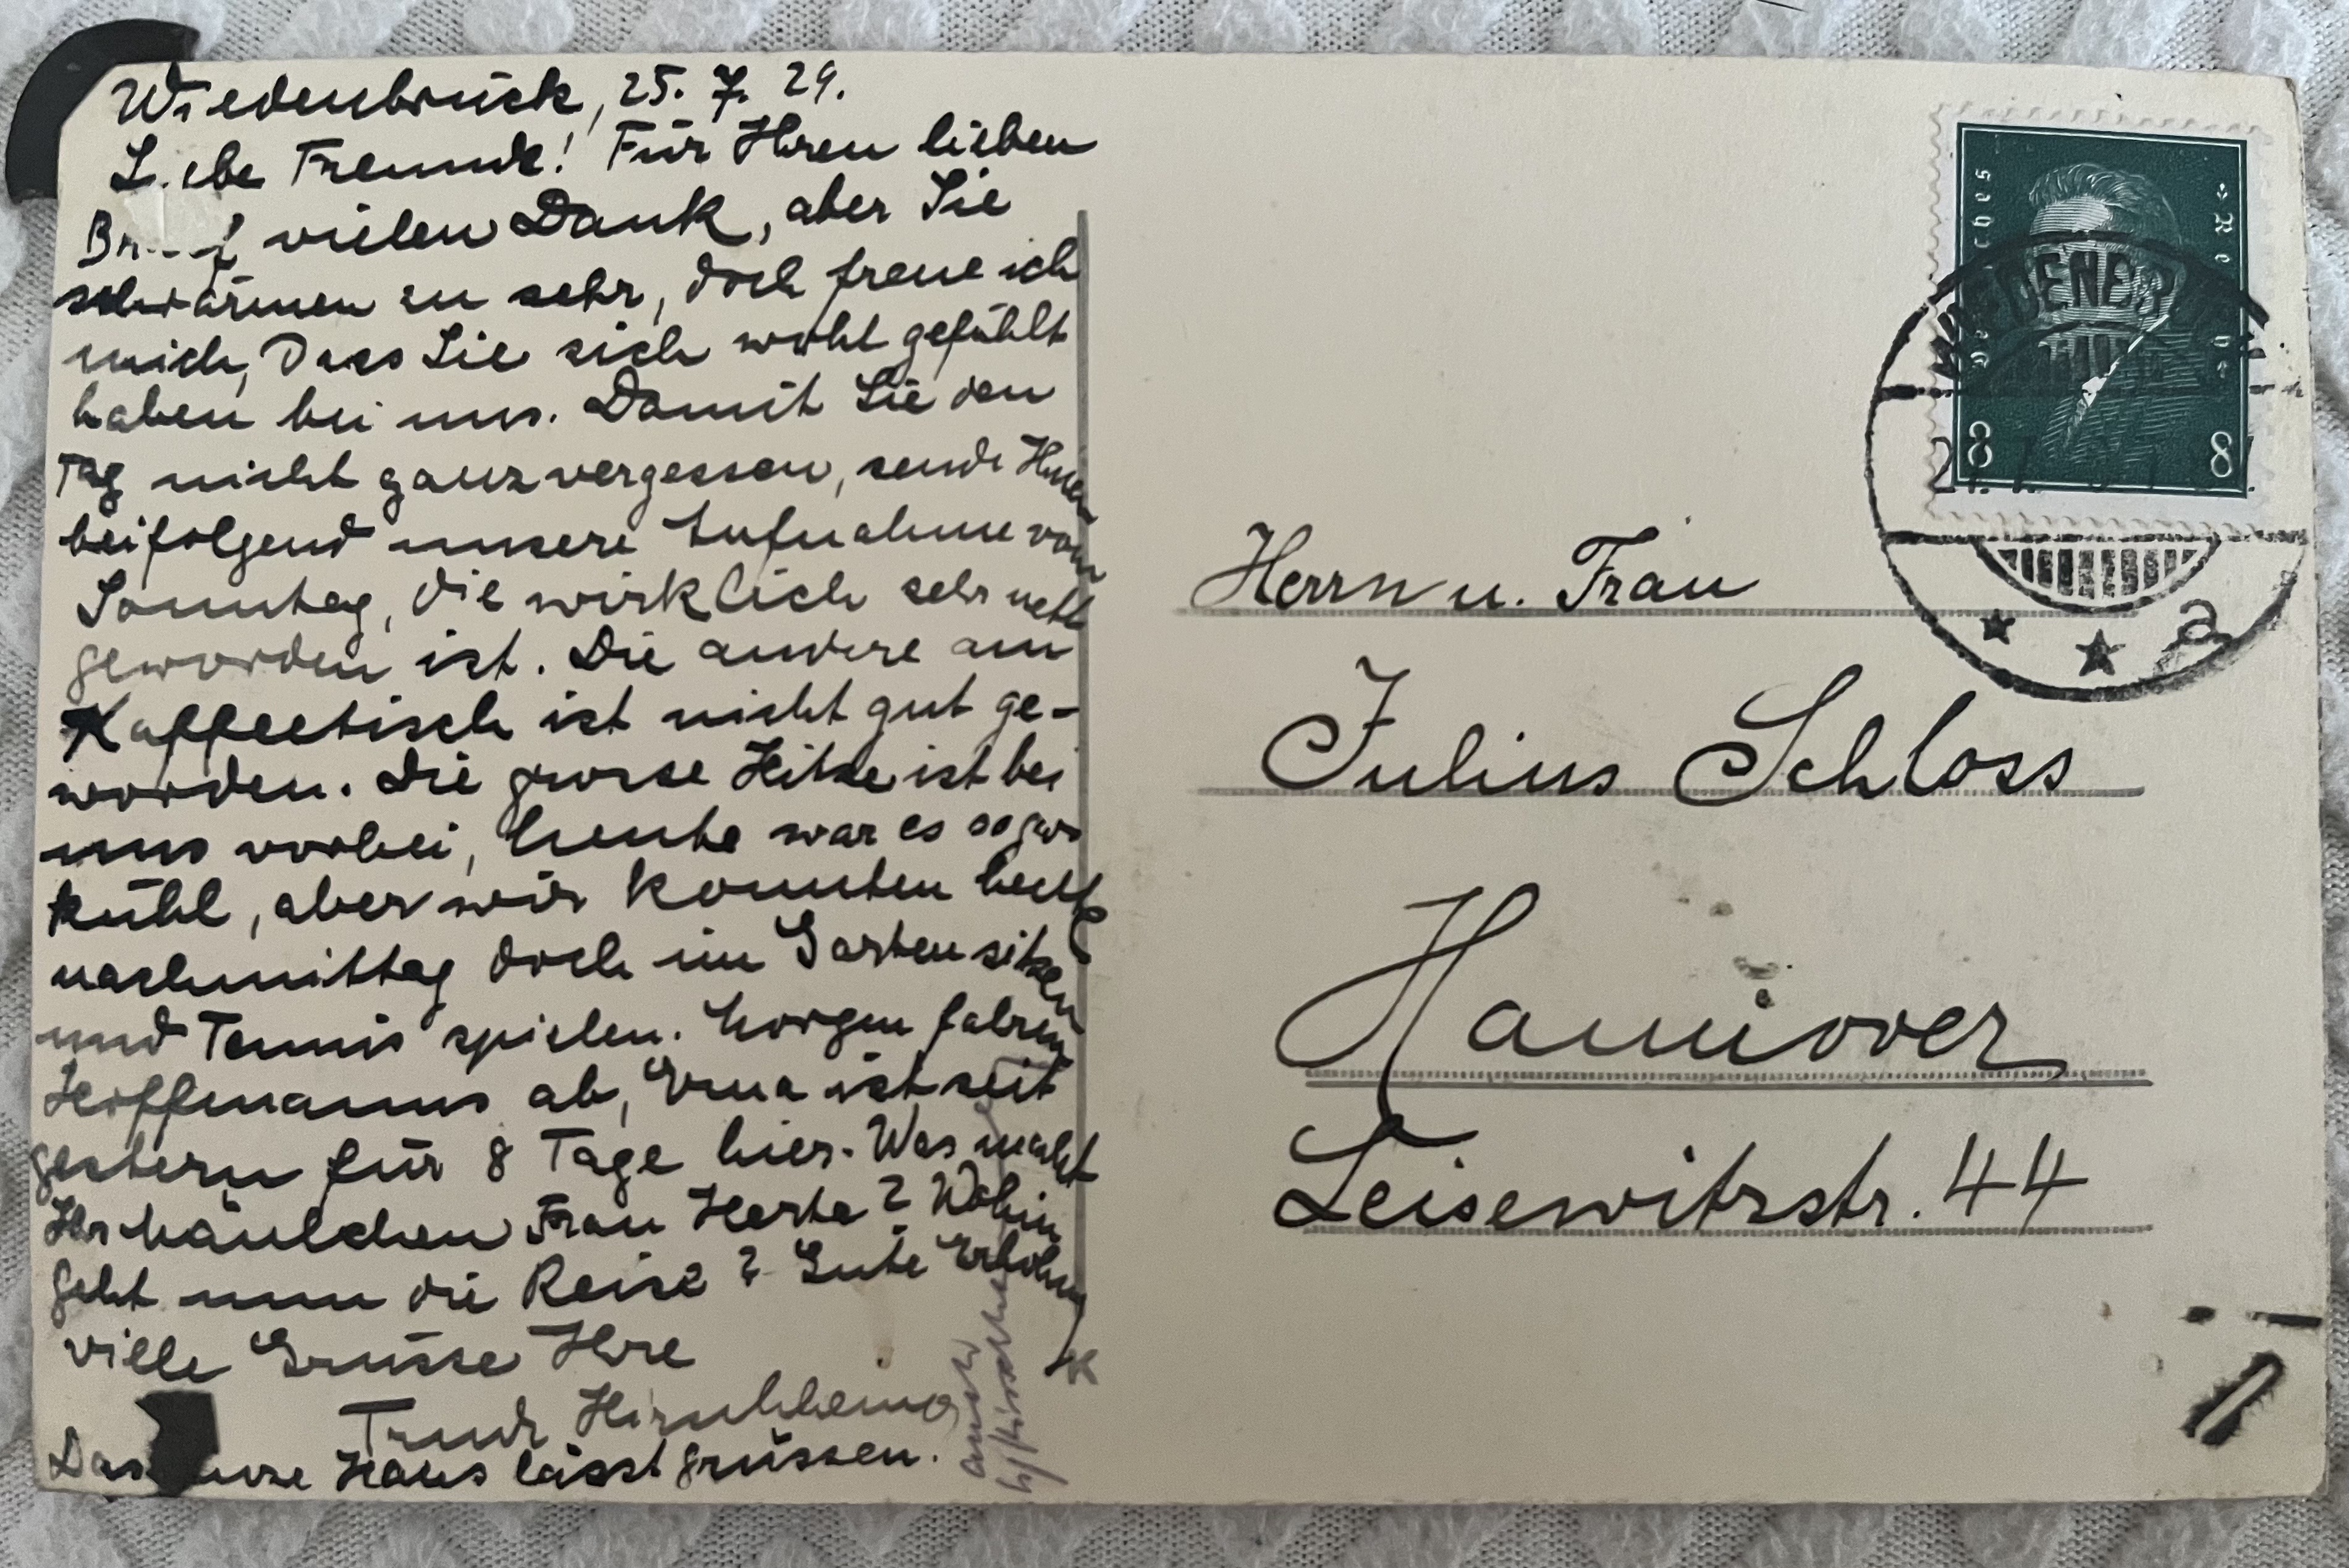 Wiedenbrück, 25. 7. 29.
Liebe Freunde! Für Ihren lieben
Brief vielen Dank, aber Sie
schwärmen zu sehr, doch freue ich
mich, dass Sie sich wohl gefühlt
haben bei uns. Damit Sie den
Tag nicht ganz vergessen, sende Ihnen
beifolgend unsere Aufnahme vom
Sonntag, die wirklich sehr nett
geworden ist. Die andere am
Kaffeetisch ist nicht gut ge-
worden. Die grosse Hitze ist bei
uns vorbei, heute war es sogar
kühl, aber wir konnten heute
nachmittag doch im Garten sitzen
und Tennis spielen. Morgen fahren
Hoffmanns ab, Erna ist seit
gestern für 8 Tage hier. Was macht
Ihr Mäulchen Frau Herta? Wohin
geht nun die Reise? Gute Erholung
viele Grüsse Ihre
Trude
Das Haus lässt grüssen.
Deutsches Reich
8 8
a
Herrn u. Frau
Julius Schloss
Hannover
Leisewitzstr. 44